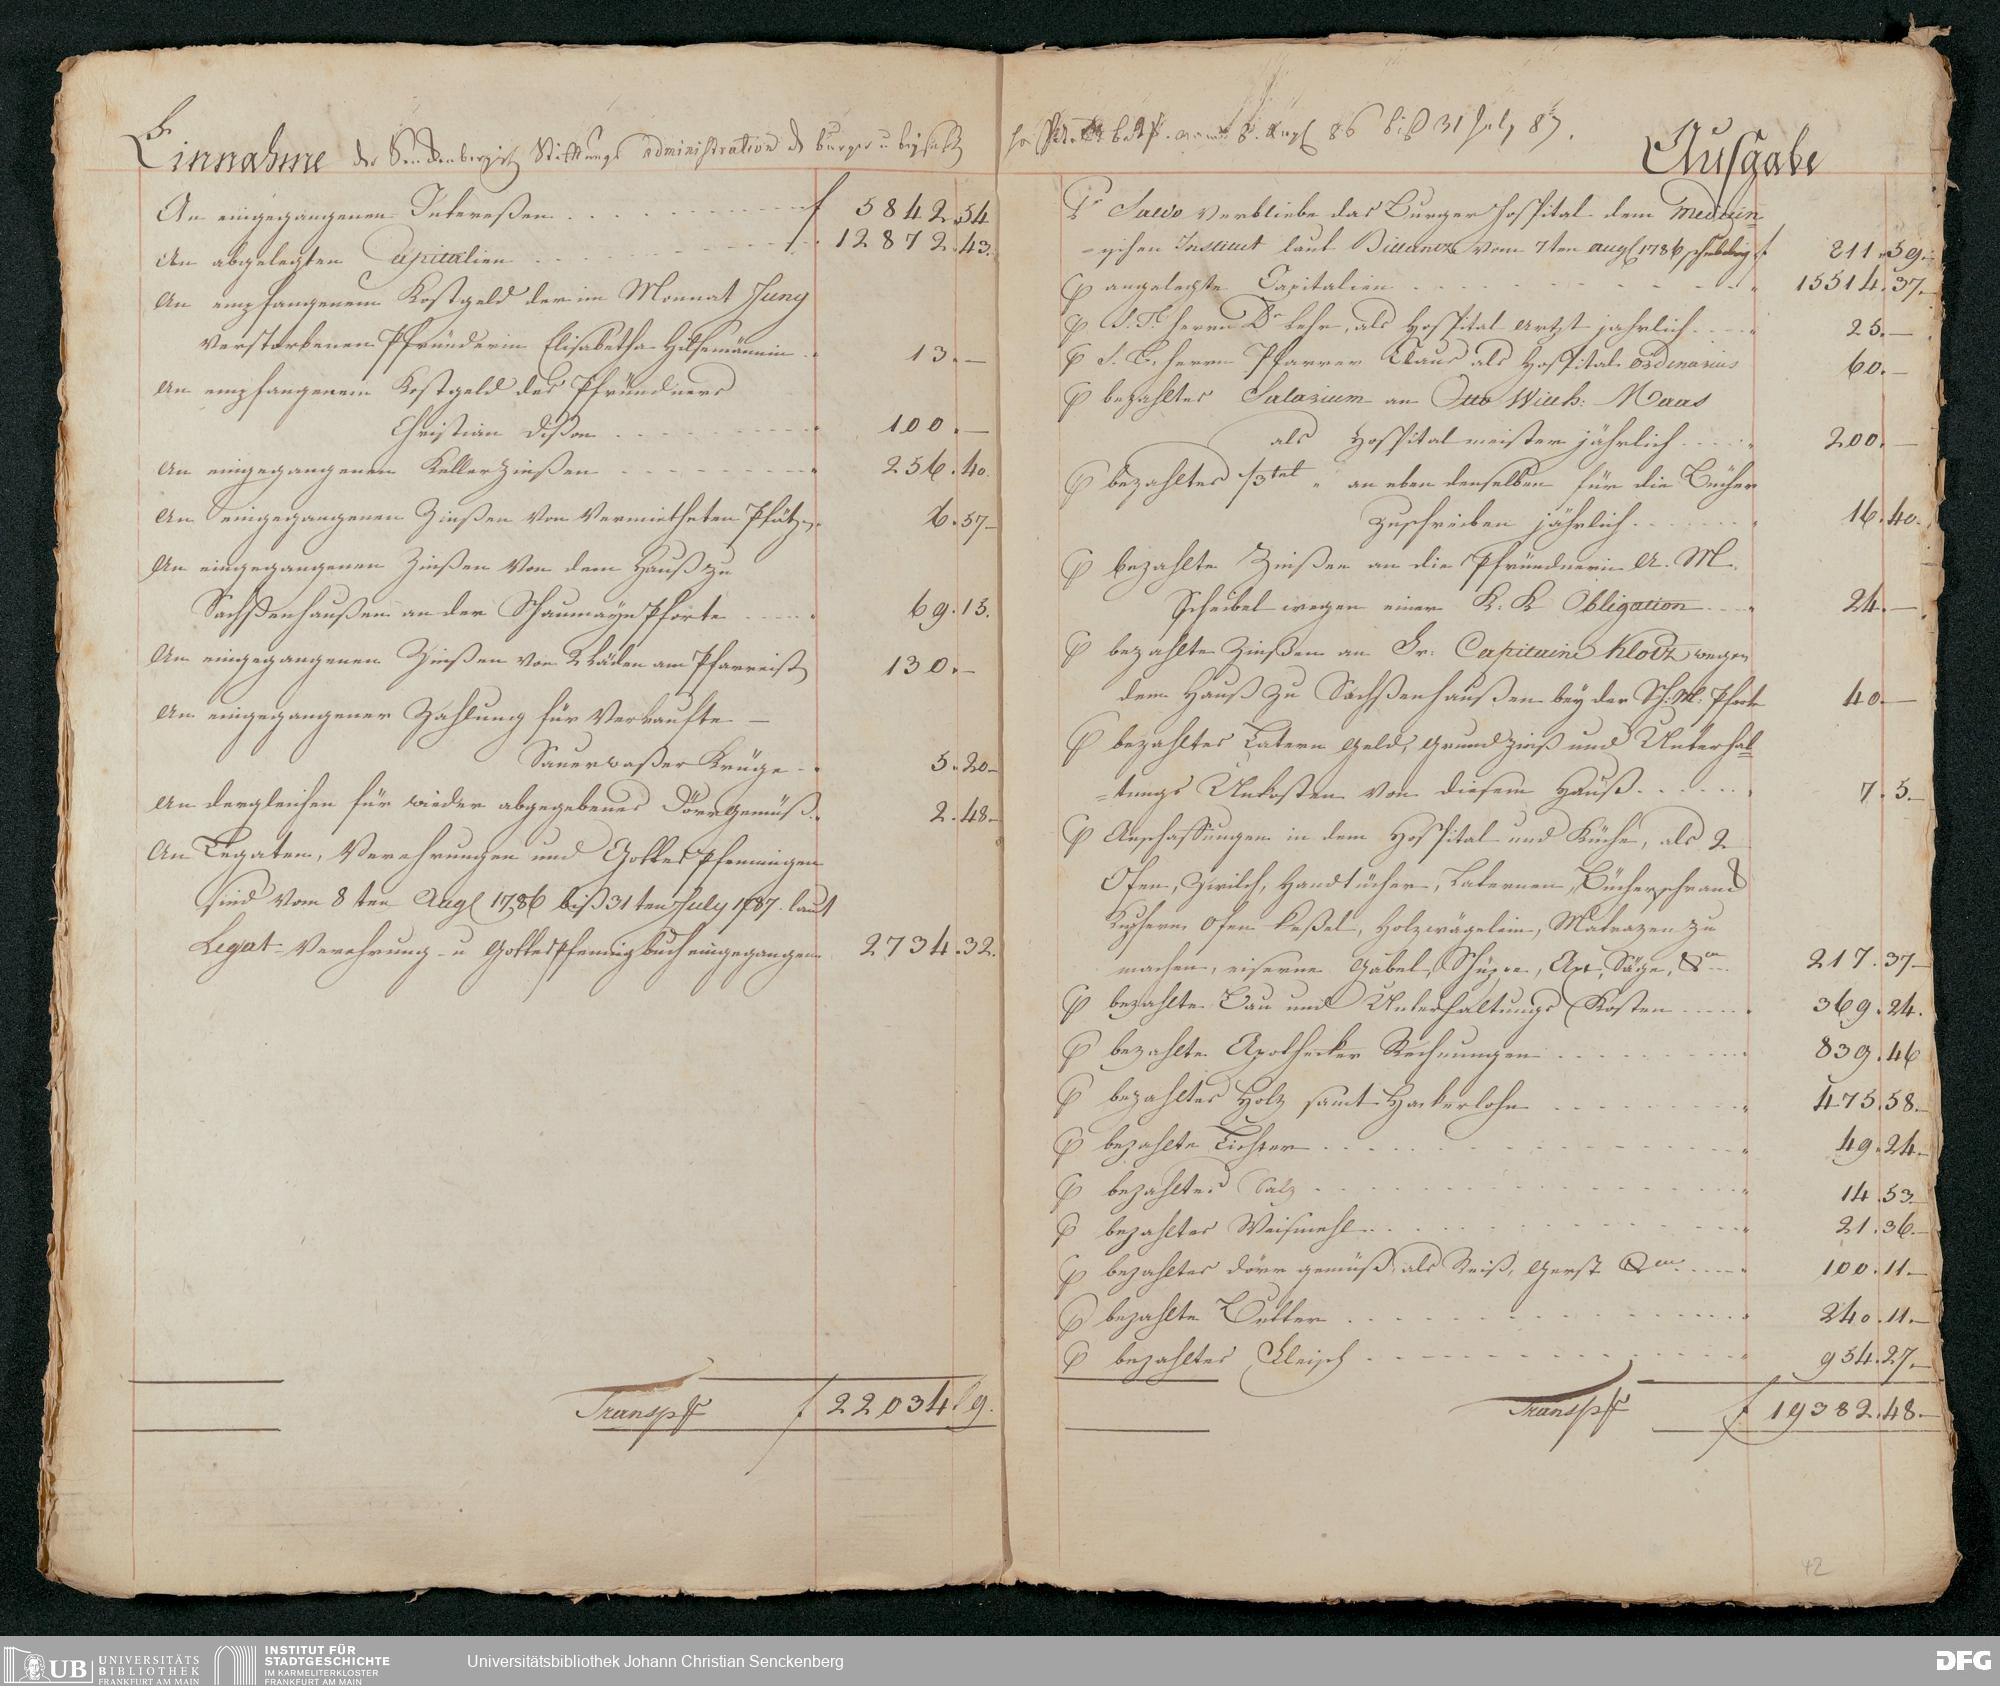 Einnahme der Senckenbergisch Stiftungs administration d burger u beysass
An eingegangenen Intereßen . . . . f 5842.54
An abgelegten Capitalien . . . . 12872.43.
An empfangenem Kostgeld der im Monnat Juny
verstorbenen Pfründerin Elisabetha Hilsemännin . 13.—
An empfangenem Kostgeld des Pfründners
Christian Dißon . . . . 100.—
An eingegangenen Kellerzinßen . . . . 256.40.
An eingegangenen Zinßen von vermietheten Plätz. 6.57—
An eingegangenen Zinßen von dem Hauß zu
Sachßenhaußen an der Schaumayn Pforte . . . . 69.15.
An eingegangenen Zinßen von 2 Läden am Pfarreisch 130.—
An eingegangener Zahlung für verkaufte —
Sauerwaßer Krüge . . 5.20—
An dergleichen für wieder abgegebenes Dörrgemüß . 2.48—
An Legaten, Verehrungen und Gottespfenningen
sind vom 8ten Augl 1786 biß 31ten July 1787. laut
Legat- Verehrung- u Gottespfenning buch eingegangen 2734.32.
Transp f 22034. 9.
Hospital 8. Augl 86 biß 31 July 87.
Ausgabe
Pr Saldo verbliebe das Burger Hospital dem Medicin=
=ischen Institut laut Billance vom 7ten Augl 1786 schuldig f 211.59.
P angelegte Capitalien . . . . 15514.37.—
P S. T. herrn Dr Lehr, als Hospital Artzt jahrlich . . . . 25.—
P S. T. herrn Pfarrer Claus als Hospital Ordinarius 60.—
P bezahltes Salarium an Otto Wilh: Maas
als Hospitalmeister jährlich . . . . 200.—
P bezahltes 1/3tel " an eben denselben für die Bücher
zuschreiben jährlich . . . . 16.40.
P bezahlte Zinßen an die Pfründnerin A. M.
Scheibel wegen einer K. K Obligation . . . . 24.—
P bezahlte Zinßen an Hr: Capitaine Klotz wegen
dem Hauß zu Sachßenhaußen bey der Sch: M: Pforte 40.—
P bezahltes Latern Geld, Grundzinß und Unterhal=
=tungs Unkosten von diesem Hauß . . . . 7.5.—
P Anschaffungen in dem Hospital und Küche, als 2
Ofen, Zwilch, Handtücher, Laternen, Bücherschranck
Kupfern Ofen keßel, Holzwägelein, Matrazen zu
machen, eiserne Gabel, Schüppe, Axt, Säge, &c . . 217.37—
P bezahlte Bau und Unterhaltungs Kosten . . . . 369.24.
P bezahlte Apothecker Rechnungen . . . . 839.46
P bezahltes Holz samt Hackerlohn . . . . 475.58.—
P bezahlte Lichter . . . . 49.24.—
P bezahltes Salz . . . . 14.53.—
P bezahltes Weismehl . . . . 21.36.—
P bezahltes dörr gemüß, als Reiß, Gerst &c . . . . 100.11.—
P bezahlte Butter . . . . 240.11.—
P bezahltes Fleisch . . . . 954.27.—
Transp f 19382.48.—
42
UB UNIVERSITÄTS
BIBLIOTHEK
FRANKFURT AM MAIN
INSTITUT FÜR
STADTGESCHICHTE
IM KARMELITERKLOSTER
FRANKFURT AM MAIN
Universitätsbibliothek Johann Christian Senckenberg
DFG